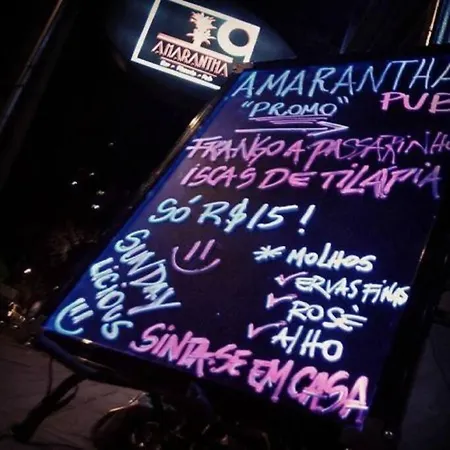 AMARANTHA
AMARANTHA
"PROMO" PUB
FRANGO A PASSARINHO
ISCAS DE TILAPIA
SÓ R$15!
* MOLHOS
✓ ERVAS FINAS
✓ ROSÈ
✓ ALHO
SUNDAY
LICIOUS
SINTA-SE EM CASA